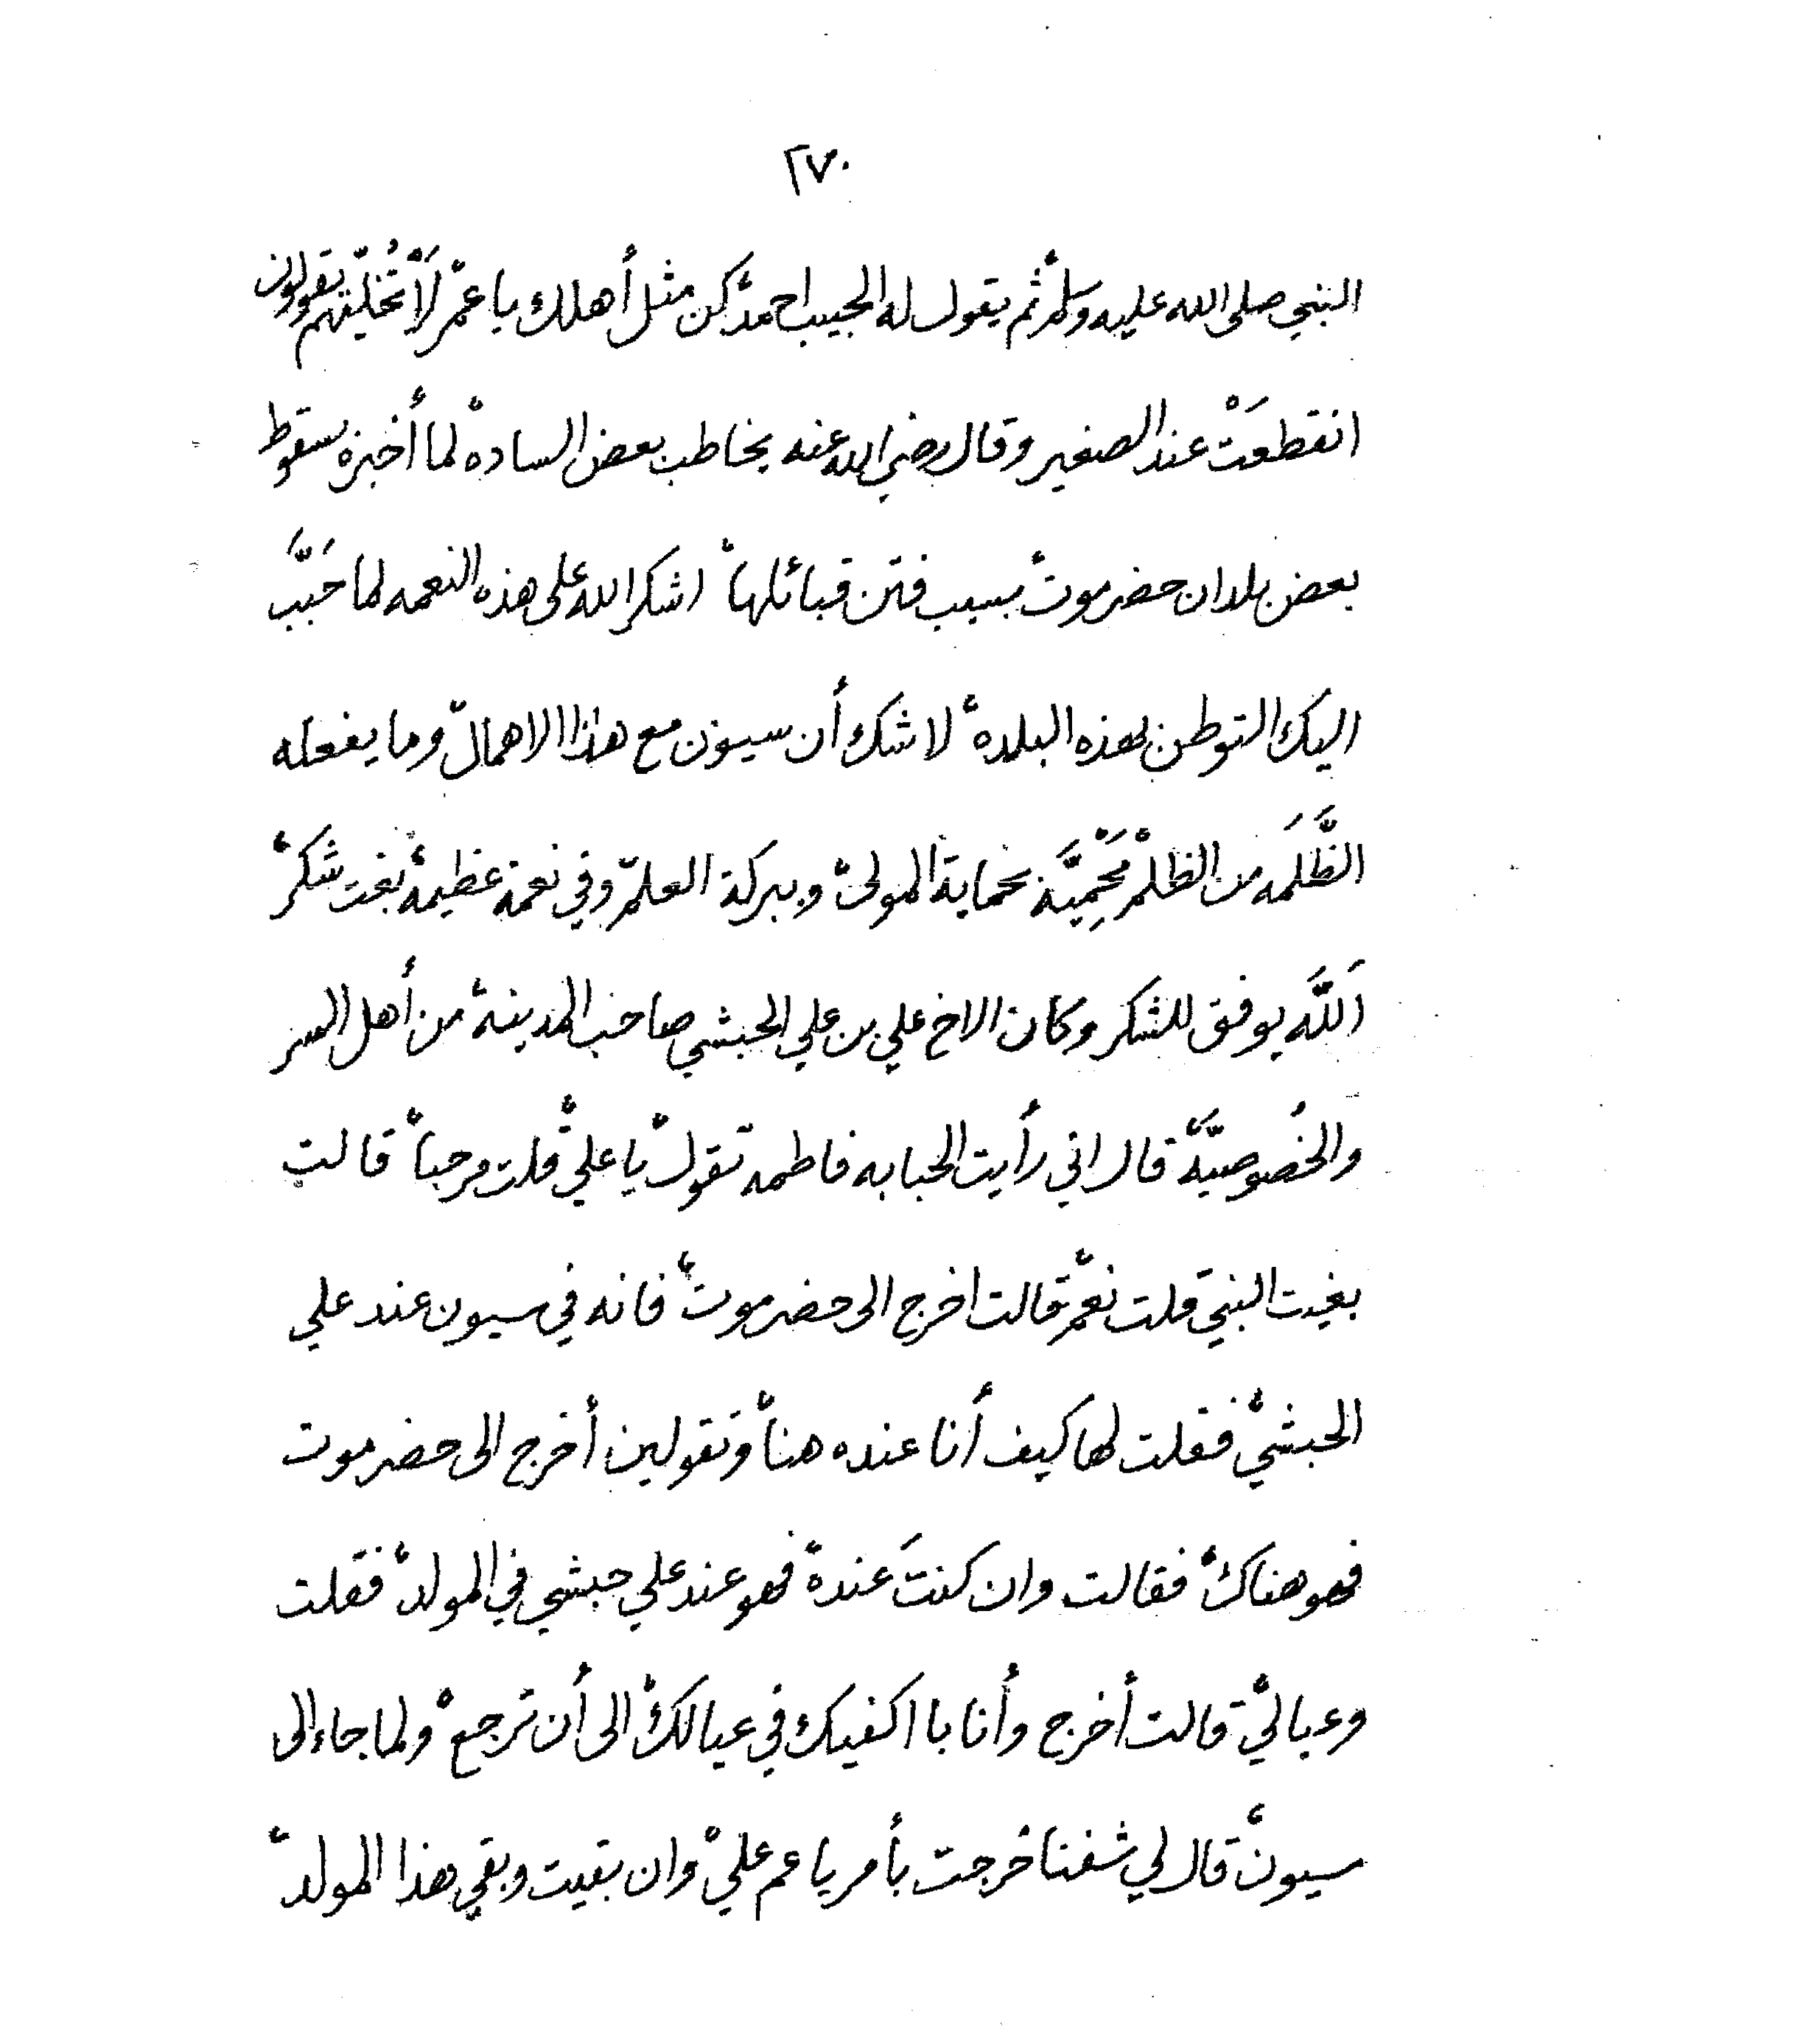 ٢٧٠
النبي صلى الله عليه وسلم ثم يقول له الحبيب احمد كن مثل أهلك يا عمر لا تخليهم يقولون
انقطعت عند الصغير وقال رضي الله عنه يخاطب بعض الساده لما أخبره بسقوط
بعض بلدان حضرموت بسبب فتن قبائلها اشكر الله على هذه النعمه لما حَبَّبَ
اليك التوطن بهذه البلده لا شك أن سيون مع هذا الاهمال وما يفعله
الظَّلَمَه من الظلم مَحْمِيَّة بحماية المولى وببركة العلم وفي نعمة عظيمة بغت شكر
اَللَّه يوفق للشكر وكان الاخ علي بن علي الحبشي صاحب المدينة من أهل السر
والخُصوصيَّة قال اني رأيت الحبابه فاطمه تقول يا علي قلت مرحبا قالت
بغيت النبي قلت نعم قالت اخرج الى حضرموت فانه في سيون عند علي
الحبشي فقلت لها كيف أنا عنده هنا وتقولين أخرج الى حضرموت
فهو هناك فقالت وان كنتَ عنده فهو عند علي حبشي في المولد فقلت
وعيالي قالت أخرج وأنا با اكفيك في عيالك الى أن ترجع ولما جاء الى
سيون قال لي شفنا خرجت بأمر يا عم علي وان بقيت وبقي هذا المولد